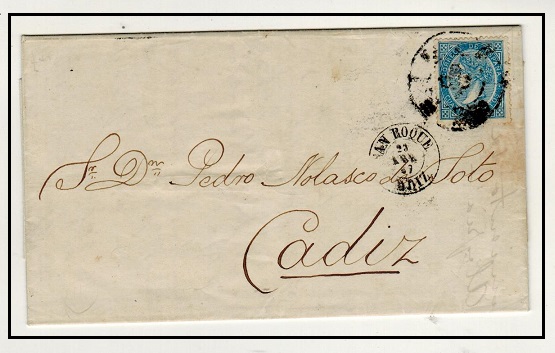 SAN ROQUE
23
ABR
67
CADIZ
Sr. Dn. Pedro Nolasco de Soto
Cadiz